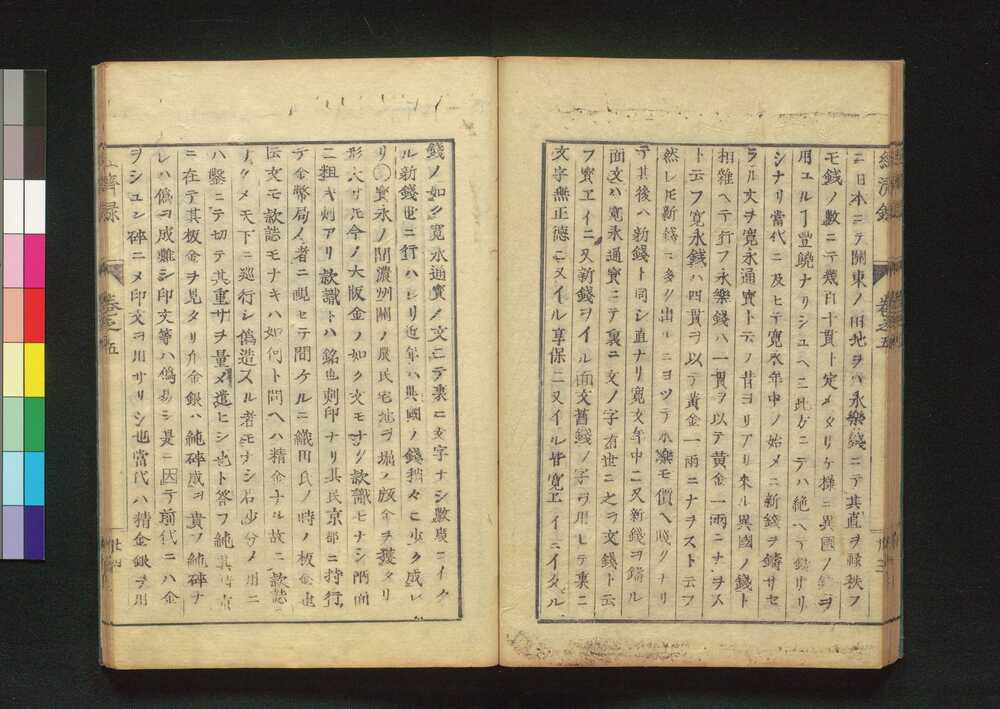 經濟録
卷之五
ニ日本ニテ關東ノ田地ヲハ永樂錢ニテ其直ヲ禄秩フ
モ錢ノ數ニテ幾百十貫ト定メタリケ様ニ異國ノ錢ヲ
用ユルヿ豐饒ナリシユヘニ此方ニテハ絶ヘテ鑄サリ
シナリ當代ニ及ヒテ寛永年中ノ始メニ新錢ヲ鑄サセ
ラル文ヲ寛永通寳ト云フ昔ヨリアリ來ル異國ノ錢ト
相雜ヘテ行フ永樂錢ハ一貫ヲ以テ黄金一兩ニナヲス
ト云フ寛永錢ハ四貫ヲ以テ黄金一兩ニナヲスト云フ
然レモ新錢ニ多ク出ルニヨツテ永樂モ價ヘ賤クナリ
テ其後ハ新錢ト同シ直ナリ寛文年中ニ又新錢ヲ鑄ル
面文ハ寛永通寳ニテ裏ニ文ノ字有世ニ之ヲ文錢ト云
フ寳ヱイニ又新錢ヲイル面文舊錢ノ字ヲ用ヒテ裏ニ
文字無正德ニ又イル享保ニ又イル皆寛ヱイニイタル
錢ノ如ク寛永通寳ノ文ニテ裏ニ文字ナシ數度ニイク
ル新錢世ニ行ハレリ近年ハ異國ノ錢稍々ニ少ク成レ
リ○寳永ノ間濃州關ノ農民宅地ヲ堀ノ版金ヲ獲タリ
形大サ凡今ノ大版金ノ如ク文モナク款識モナシ両面
ニ粗キ刻アリ款識トハ銘也刻印ナリ其民京都ニ持行
テ金幣局ノ者ニ覗セテ問ケルニ織田氏ノ時ノ板金也
伝文モ款誌モナキハ如何ト問ヘハ精金ナル故ニ款誌
ナクメ天下ニ巡行シ偽造スル者モナシ若少分ノ用ニ
ハ鑿ニテ切テ其重サヲ量メ遣ヒシ也ト答フ純其
ニ在テ其板金ヲ見タリ介金銀ハ純碎成ヲ貴フ純碎ナ
レハ偽ヲ成難シ印文等ハ偽易シ是ニ因テ前代ニハ金
ヲシユン碎ニメ印文ヲ用サリシ也當代ハ精金銀ヲ用
濟録
卷之五